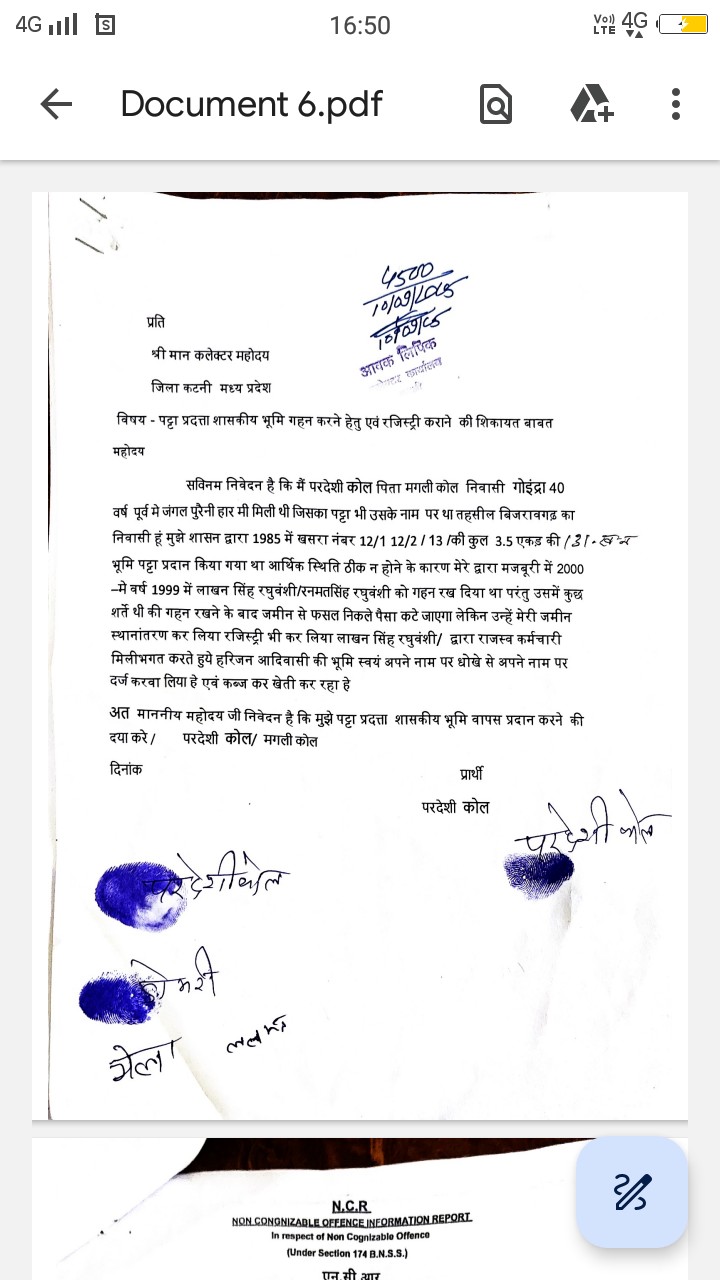 4G
16:50
Vo)) LTE 4G
Document 6.pdf
4500
10/09/2025
10/09/25
आवक लिपिक
प्रति
श्री मान कलेक्टर महोदय
जिला कटनी मध्य प्रदेश
विषय - पट्टा प्रदत्ता शासकीय भूमि गहन करने हेतु एवं रजिस्ट्री कराने की शिकायत बाबत
महोदय
सविनम निवेदन है कि मैं परदेशी कोल पिता मगली कोल निवासी गोइंद्रा 40
वर्ष पूर्व मे जंगल पुरैनी हार मी मिली थी जिसका पट्टा भी उसके नाम पर था तहसील बिजरावगढ़ का
निवासी हूं मुझे शासन द्वारा 1985 में खसरा नंबर 12/1 12/2 / 13 /की कुल 3.5 एकड़ की
भूमि पट्टा प्रदान किया गया था आर्थिक स्थिति ठीक न होने के कारण मेरे द्वारा मजबूरी में 2000
–मे वर्ष 1999 में लाखन सिंह रघुवंशी/रनमतसिंह रघुवंशी को गहन रख दिया था परंतु उसमें कुछ
शर्ते थी की गहन रखने के बाद जमीन से फसल निकले पैसा कटे जाएगा लेकिन उन्हें मेरी जमीन
स्थानांतरण कर लिया रजिस्ट्री भी कर लिया लाखन सिंह रघुवंशी/ द्वारा राजस्व कर्मचारी
मिलीभगत करते हुये हरिजन आदिवासी की भूमि स्वयं अपने नाम पर धोखे से अपने नाम पर
दर्ज करवा लिया हे एवं कब्ज कर खेती कर रहा हे
अत माननीय महोदय जी निवेदन है कि मुझे पट्टा प्रदत्ता शासकीय भूमि वापस प्रदान करने की
दया करे / परदेशी कोल/ मगली कोल
दिनांक
प्रार्थी
परदेशी कोल
परदेशी कोल
परदेशी कोल
N.C.R
NON CONGNIZABLE OFFENCE INFORMATION REPORT
In respect of Non Cognizable Offence
(Under Section 174 B.N.S.S.)
एन.सी.आर